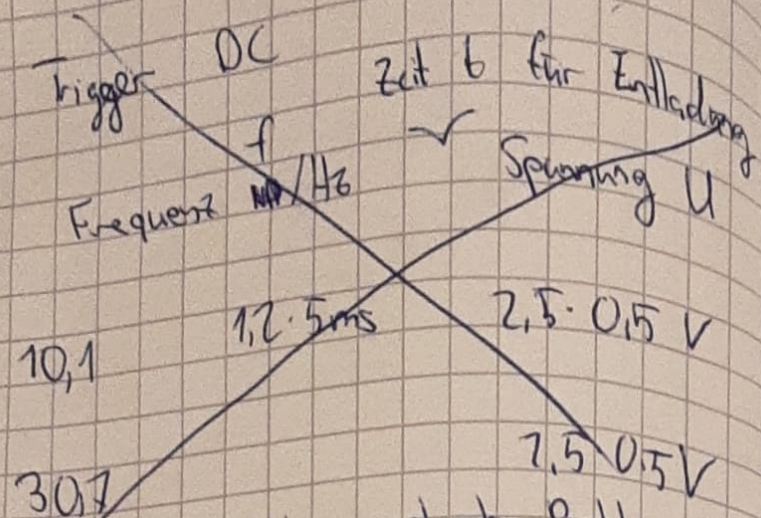 Trigger DC Zeit t für Entladung
Frequenz f /Hz Spannung U
10,1 1,2 · 5ms 2,5 · 0,5 V
30,7 1,5 0,5 V